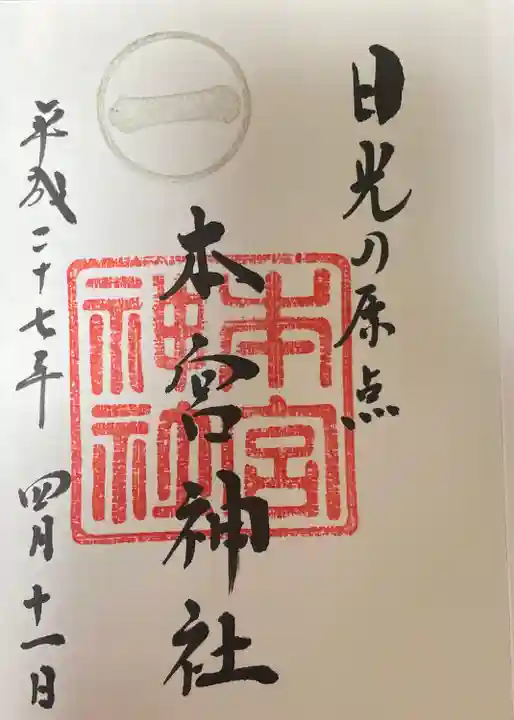 日光の原点
本宮神社
本宮
神社
一
平成二十七年 四月十一日